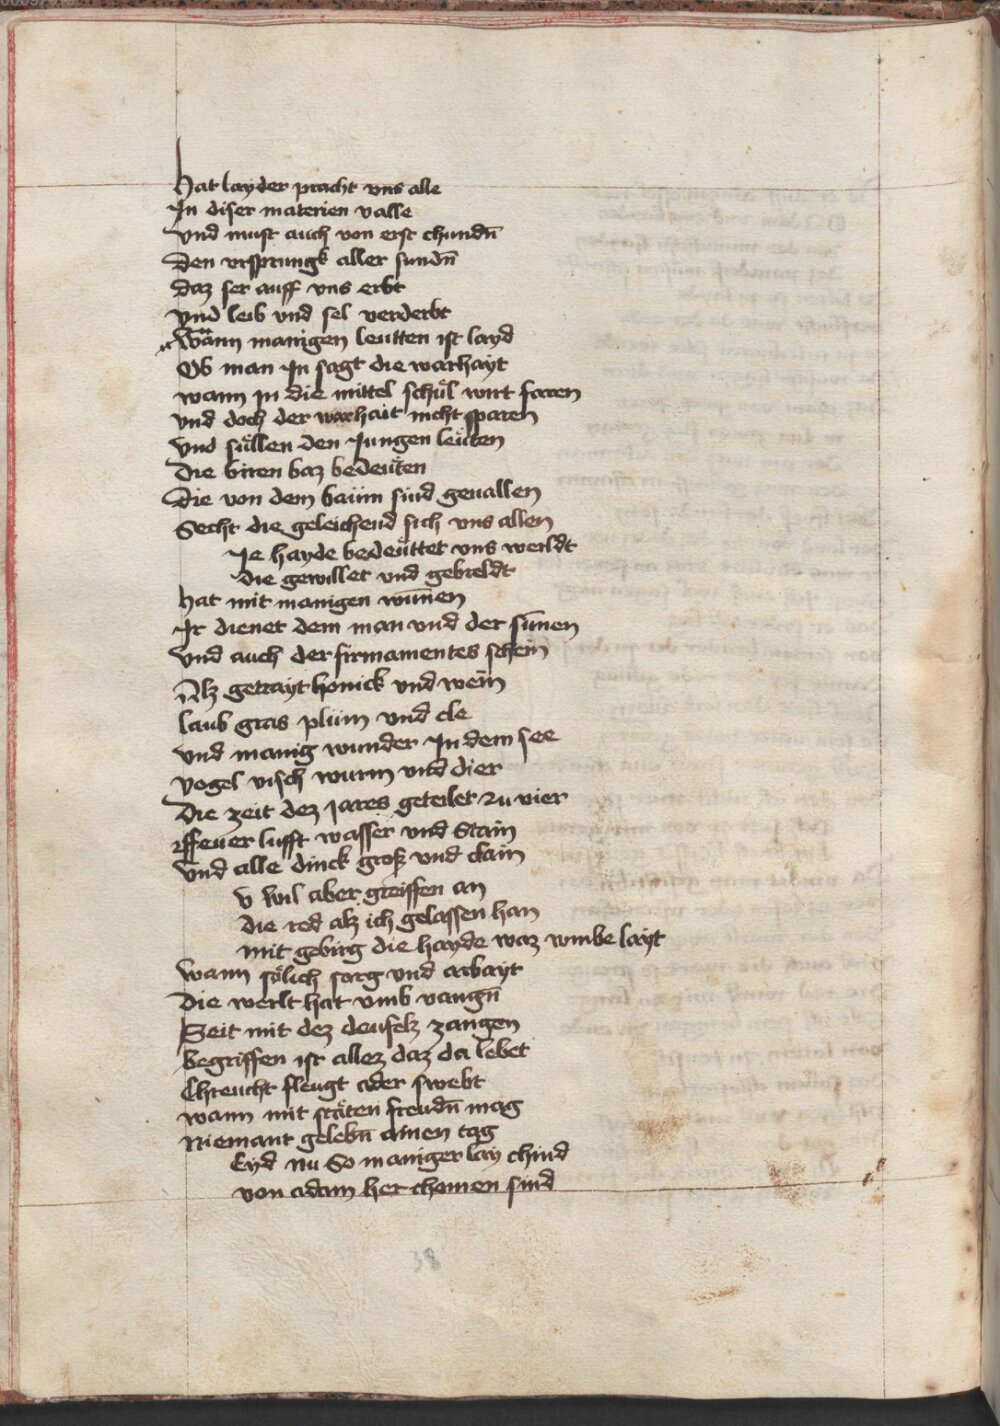 hat layder pracht vns alle
In diser materien valle
vnd must auch von erst chundn̄
Den vrsprungk aller sundn̄
Daz ser auff vns erbt
vnd leib vnd sel verderbt
Wann manigen leutten ist layd
Ob man In sagt die warhayt
wann In die mittel schůl wirt faren
vnd doch der warhait nicht sparen
vnd sullen den Jungen leuͤtten
Die biren baz bedeuͤten
Die von dem baum sind geuallen
Secht die geleichend sich vns allen
Je hayde bedeuͤttet vns werldt
Die gewillet vnd gebreldt
hat mit manigen wūnen
Ir dienet dem man vnd der sūnen
vnd auch der firmamentes schein
Alz getrayt honick vnd wein
laub gras plům vnd cle
vnd manig wunder In dem see
vogel visch wurm vnd dier
Die zeit dez jares geteilet zu vier
ffeuer lufft wasser vnd Stain
vnd alle dinck groß vnd clain
v wil aber greiffen an
Die red alz ich gelassen han
mit gebirg die hayde waz vmbe layt
wann soͤlich sorg vnd arbayt
Die werlt hat vmb vangn̄
Seit mit dez deufelz zangen
begriffen ist allez daz da lebet
Chreucht fleugt oder swebt
wann mit staͤten freudn̄ mag
Niemant gelebn̄ ainen tag
Eyd nu So maniger lay chind
von adam her chomen sind
38